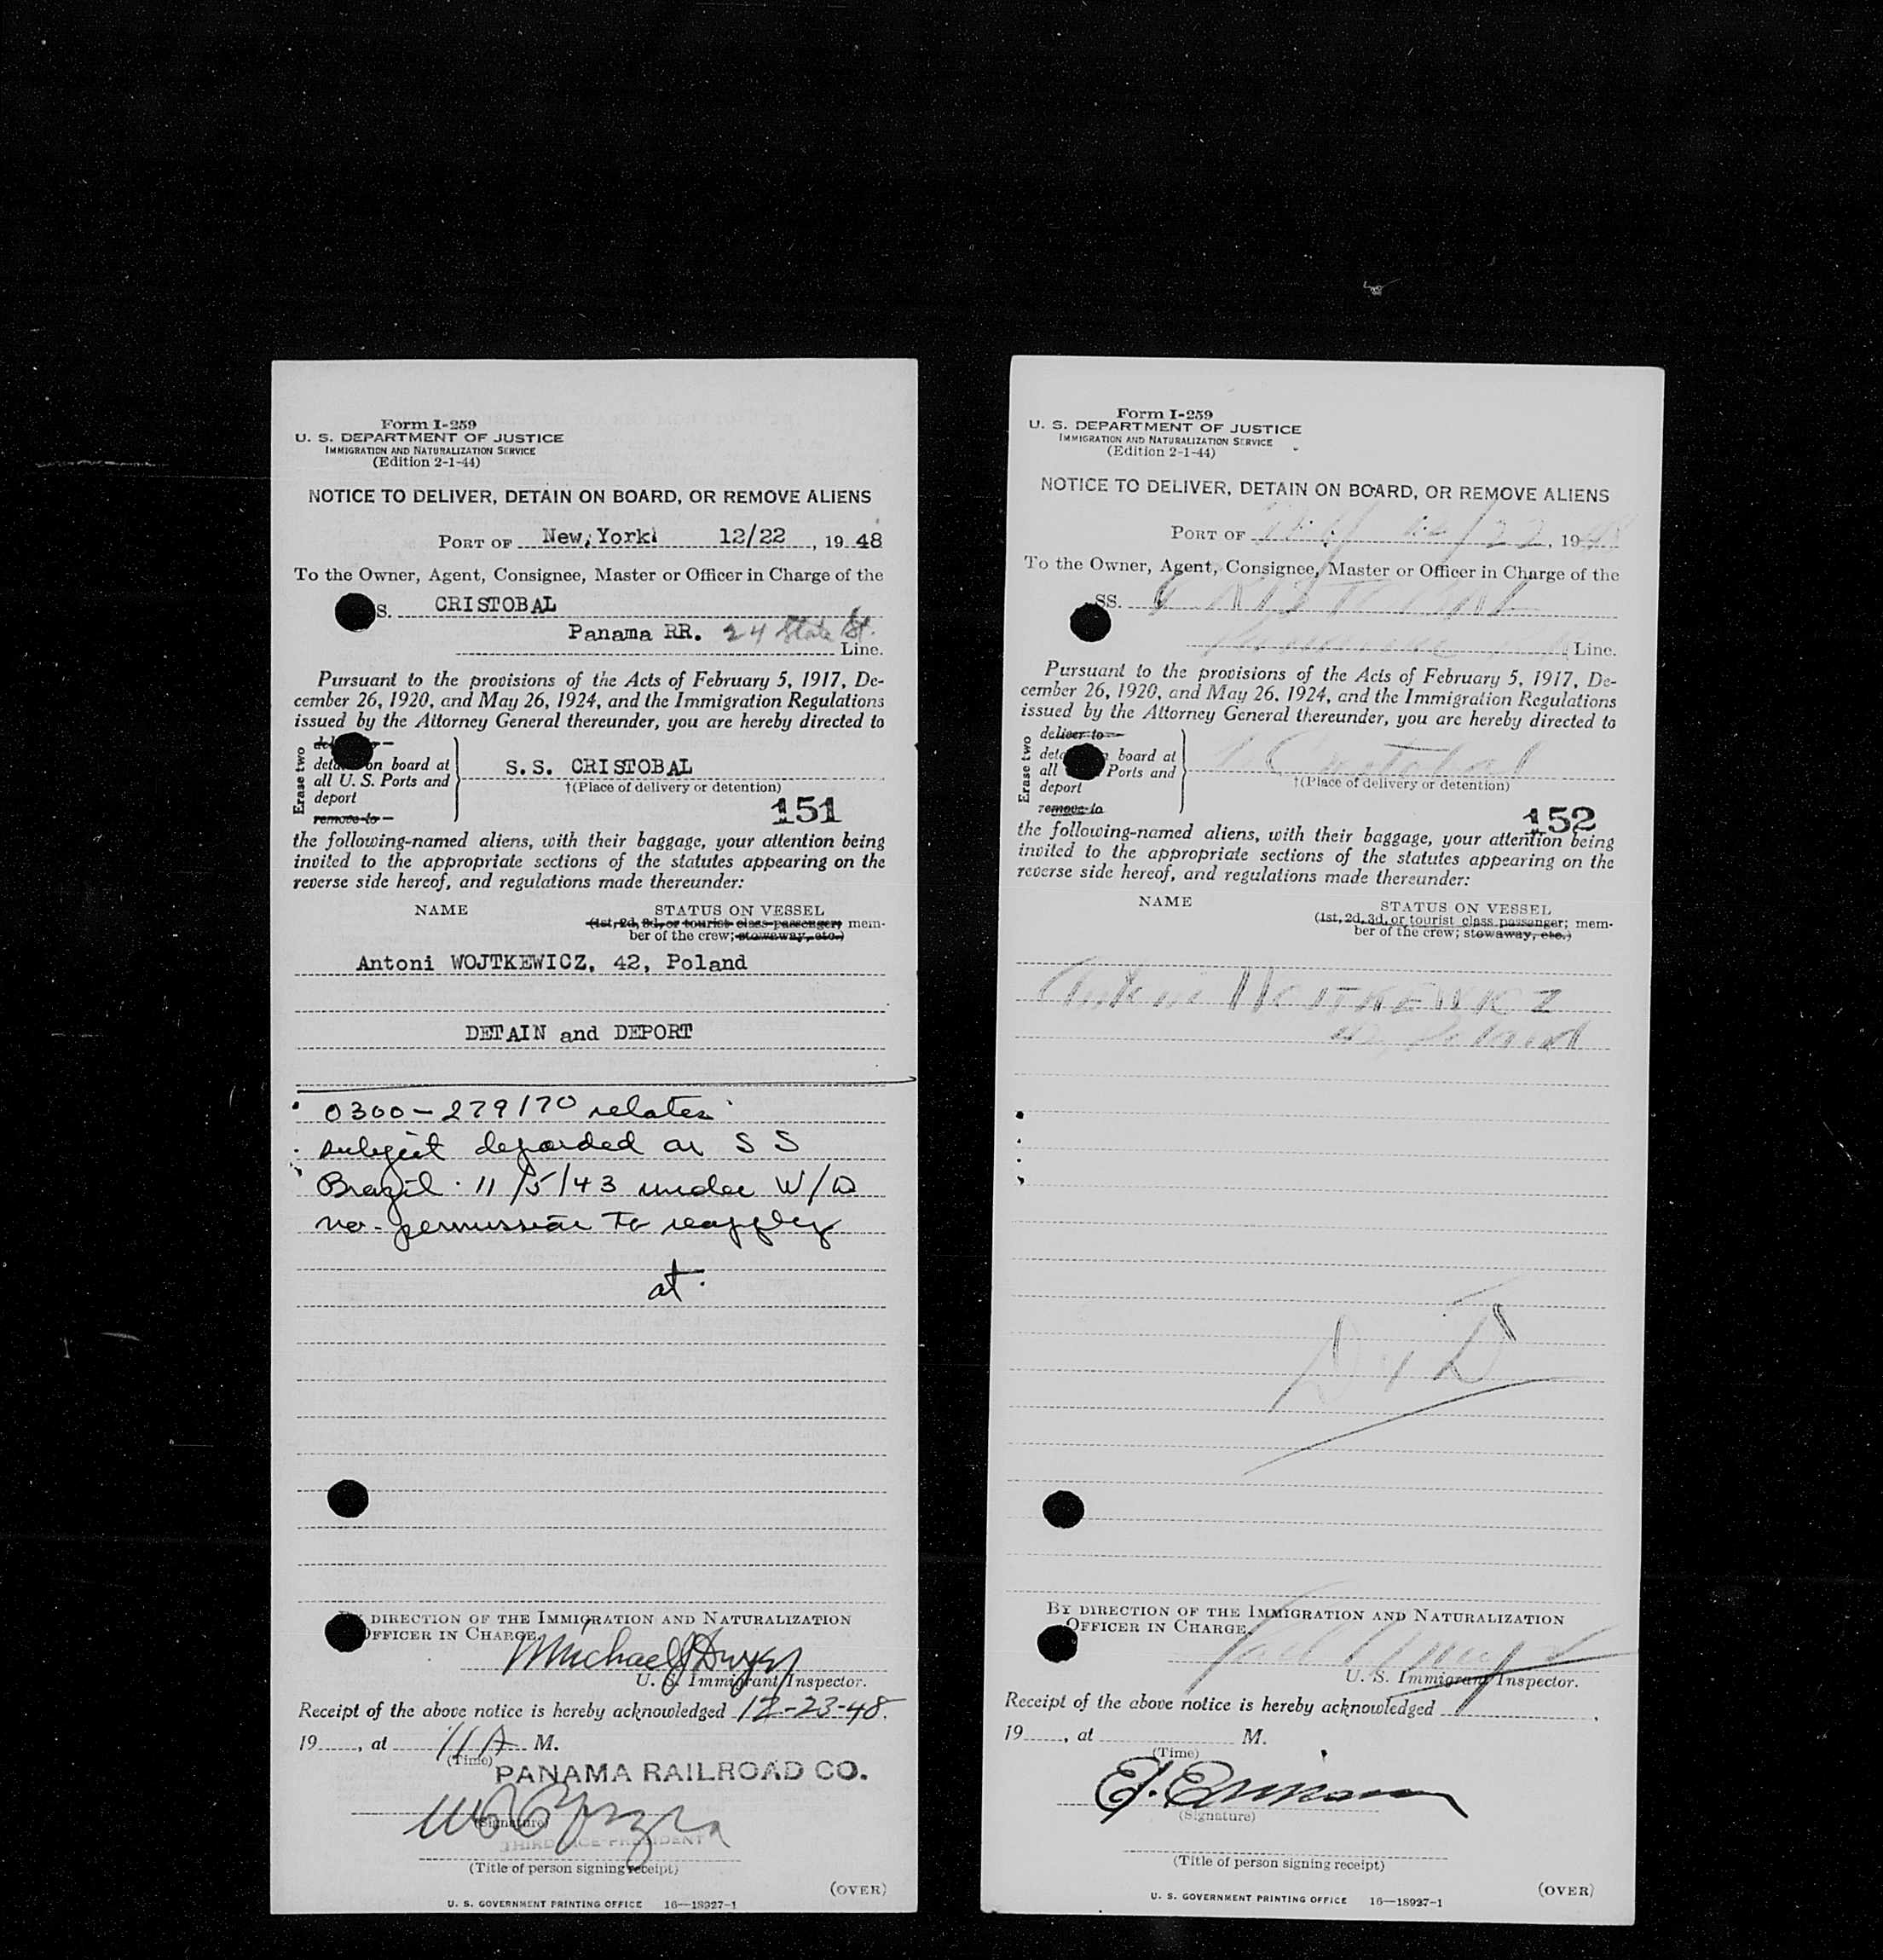 Form I-259
U. S. DEPARTMENT OF JUSTICE
IMMIGRATION AND NATURALIZATION SERVICE
(Edition 2-1-44)
NOTICE TO DELIVER, DETAIN ON BOARD, OR REMOVE ALIENS
PORT OF New York 12/22, 19 48
To the Owner, Agent, Consignee, Master or Officer in Charge of the
S. CRISTOBAL
Panama RR. 24 State St.
Line.
Pursuant to the provisions of the Acts of February 5, 1917, De-
cember 26, 1920, and May 26, 1924, and the Immigration Regulations
issued by the Attorney General thereunder, you are hereby directed to
Erase two
on board at
all U. S. Ports and
deport
remove to
S.S. CRISTOBAL
†(Place of delivery or detention)
151
the following-named aliens, with their baggage, your attention being
invited to the appropriate sections of the statutes appearing on the
reverse side hereof, and regulations made thereunder:
NAME STATUS ON VESSEL
(1st, 2d, 3d, or tourist class passenger; mem-
ber of the crew; stowaway, etc.)
Antoni WOJTKEWICZ, 42, Poland
DETAIN and DEPORT
0300-279170 relates
subject deported on S S
Brazil 11/5/43 under W/D
no permission to reapply
at
BY DIRECTION OF THE IMMIGRATION AND NATURALIZATION
OFFICER IN CHARGE.
Michael J Dwyer
U. S. Immigrant Inspector.
Receipt of the above notice is hereby acknowledged 12-23-48.
19, at 11 A M.
(Time)
PANAMA RAILROAD CO.
(Signature)
THIRD VICE-PRESIDENT
(Title of person signing receipt)
(OVER)
U. S. GOVERNMENT PRINTING OFFICE 16—18927-1
Form I-259
U. S. DEPARTMENT OF JUSTICE
IMMIGRATION AND NATURALIZATION SERVICE
(Edition 2-1-44)
NOTICE TO DELIVER, DETAIN ON BOARD, OR REMOVE ALIENS
PORT OF N.Y. 12/22, 19 48
To the Owner, Agent, Consignee, Master or Officer in Charge of the
SS. CRISTOBAL
Line.
Pursuant to the provisions of the Acts of February 5, 1917, De-
cember 26, 1920, and May 26, 1924, and the Immigration Regulations
issued by the Attorney General thereunder, you are hereby directed to
Erase two
deliver to
board at
all Ports and
deport
remove to
Cristobal
†(Place of delivery or detention)
152
the following-named aliens, with their baggage, your attention being
invited to the appropriate sections of the statutes appearing on the
reverse side hereof, and regulations made thereunder:
NAME STATUS ON VESSEL
(1st, 2d, 3d, or tourist class passenger; mem-
ber of the crew; stowaway, etc.)
Antoni WOJTKEWICZ
Poland
D & D
BY DIRECTION OF THE IMMIGRATION AND NATURALIZATION
OFFICER IN CHARGE.
U. S. Immigrant Inspector.
Receipt of the above notice is hereby acknowledged
19, at M.
(Time)
(Signature)
(Title of person signing receipt)
(OVER)
U. S. GOVERNMENT PRINTING OFFICE 16—18927-1